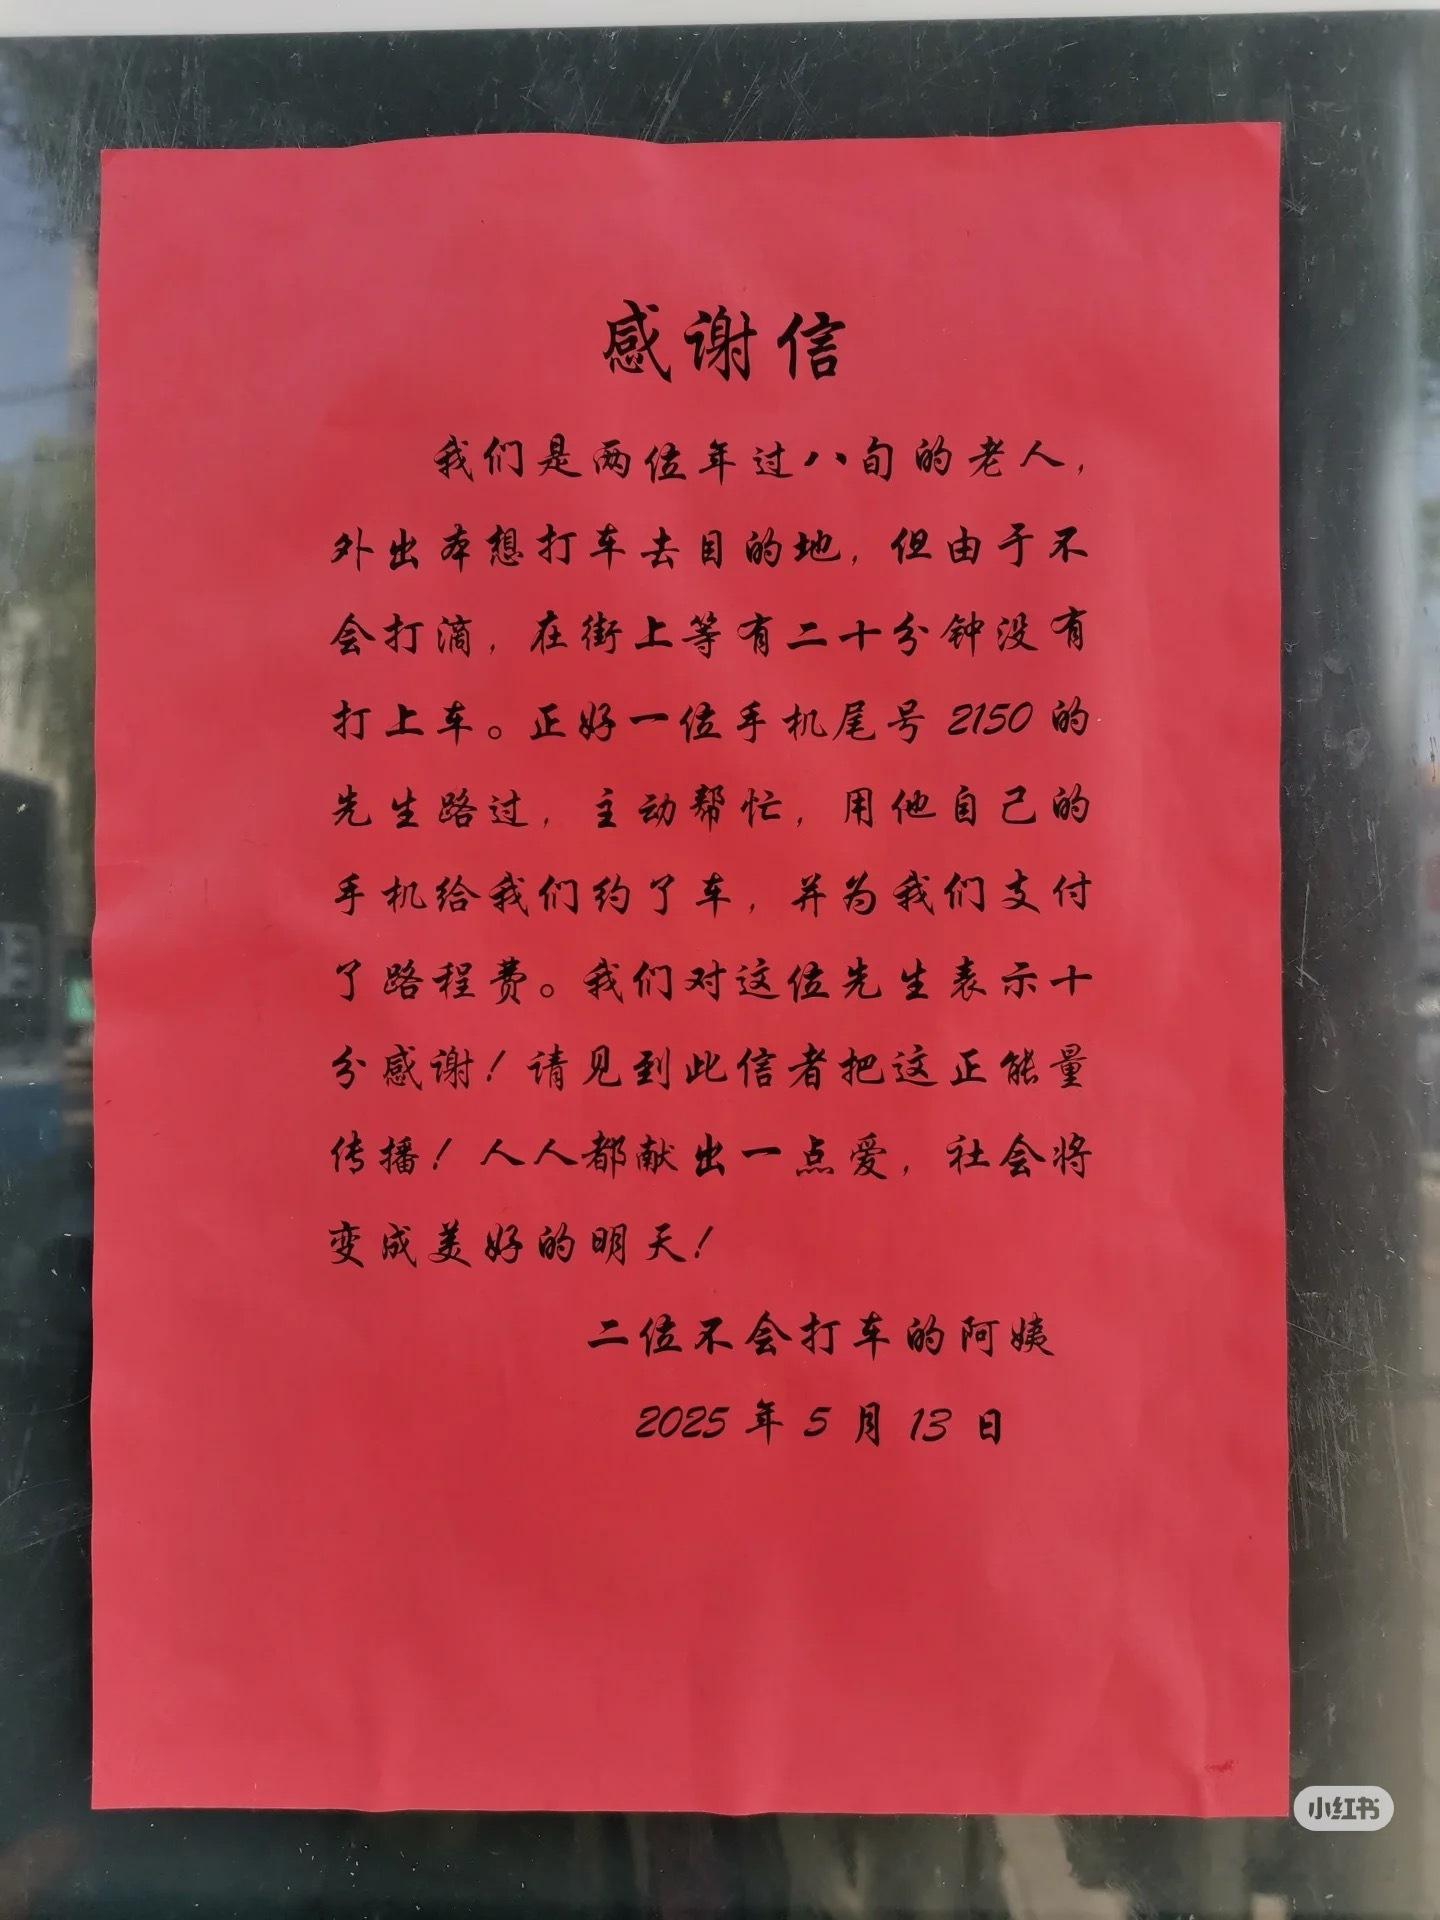 感谢信
我们是两位年过八旬的老人，
外出本想打车去目的地，但由于不
会打滴，在街上等有二十分钟没有
打上车。正好一位手机尾号 2150 的
先生路过，主动帮忙，用他自己的
手机给我们约了车，并为我们支付
了路程费。我们对这位先生表示十
分感谢！请见到此信者把这正能量
传播！人人都献出一点爱，社会将
变成美好的明天！
二位不会打车的阿姨
2025 年 5 月 13 日
小红书